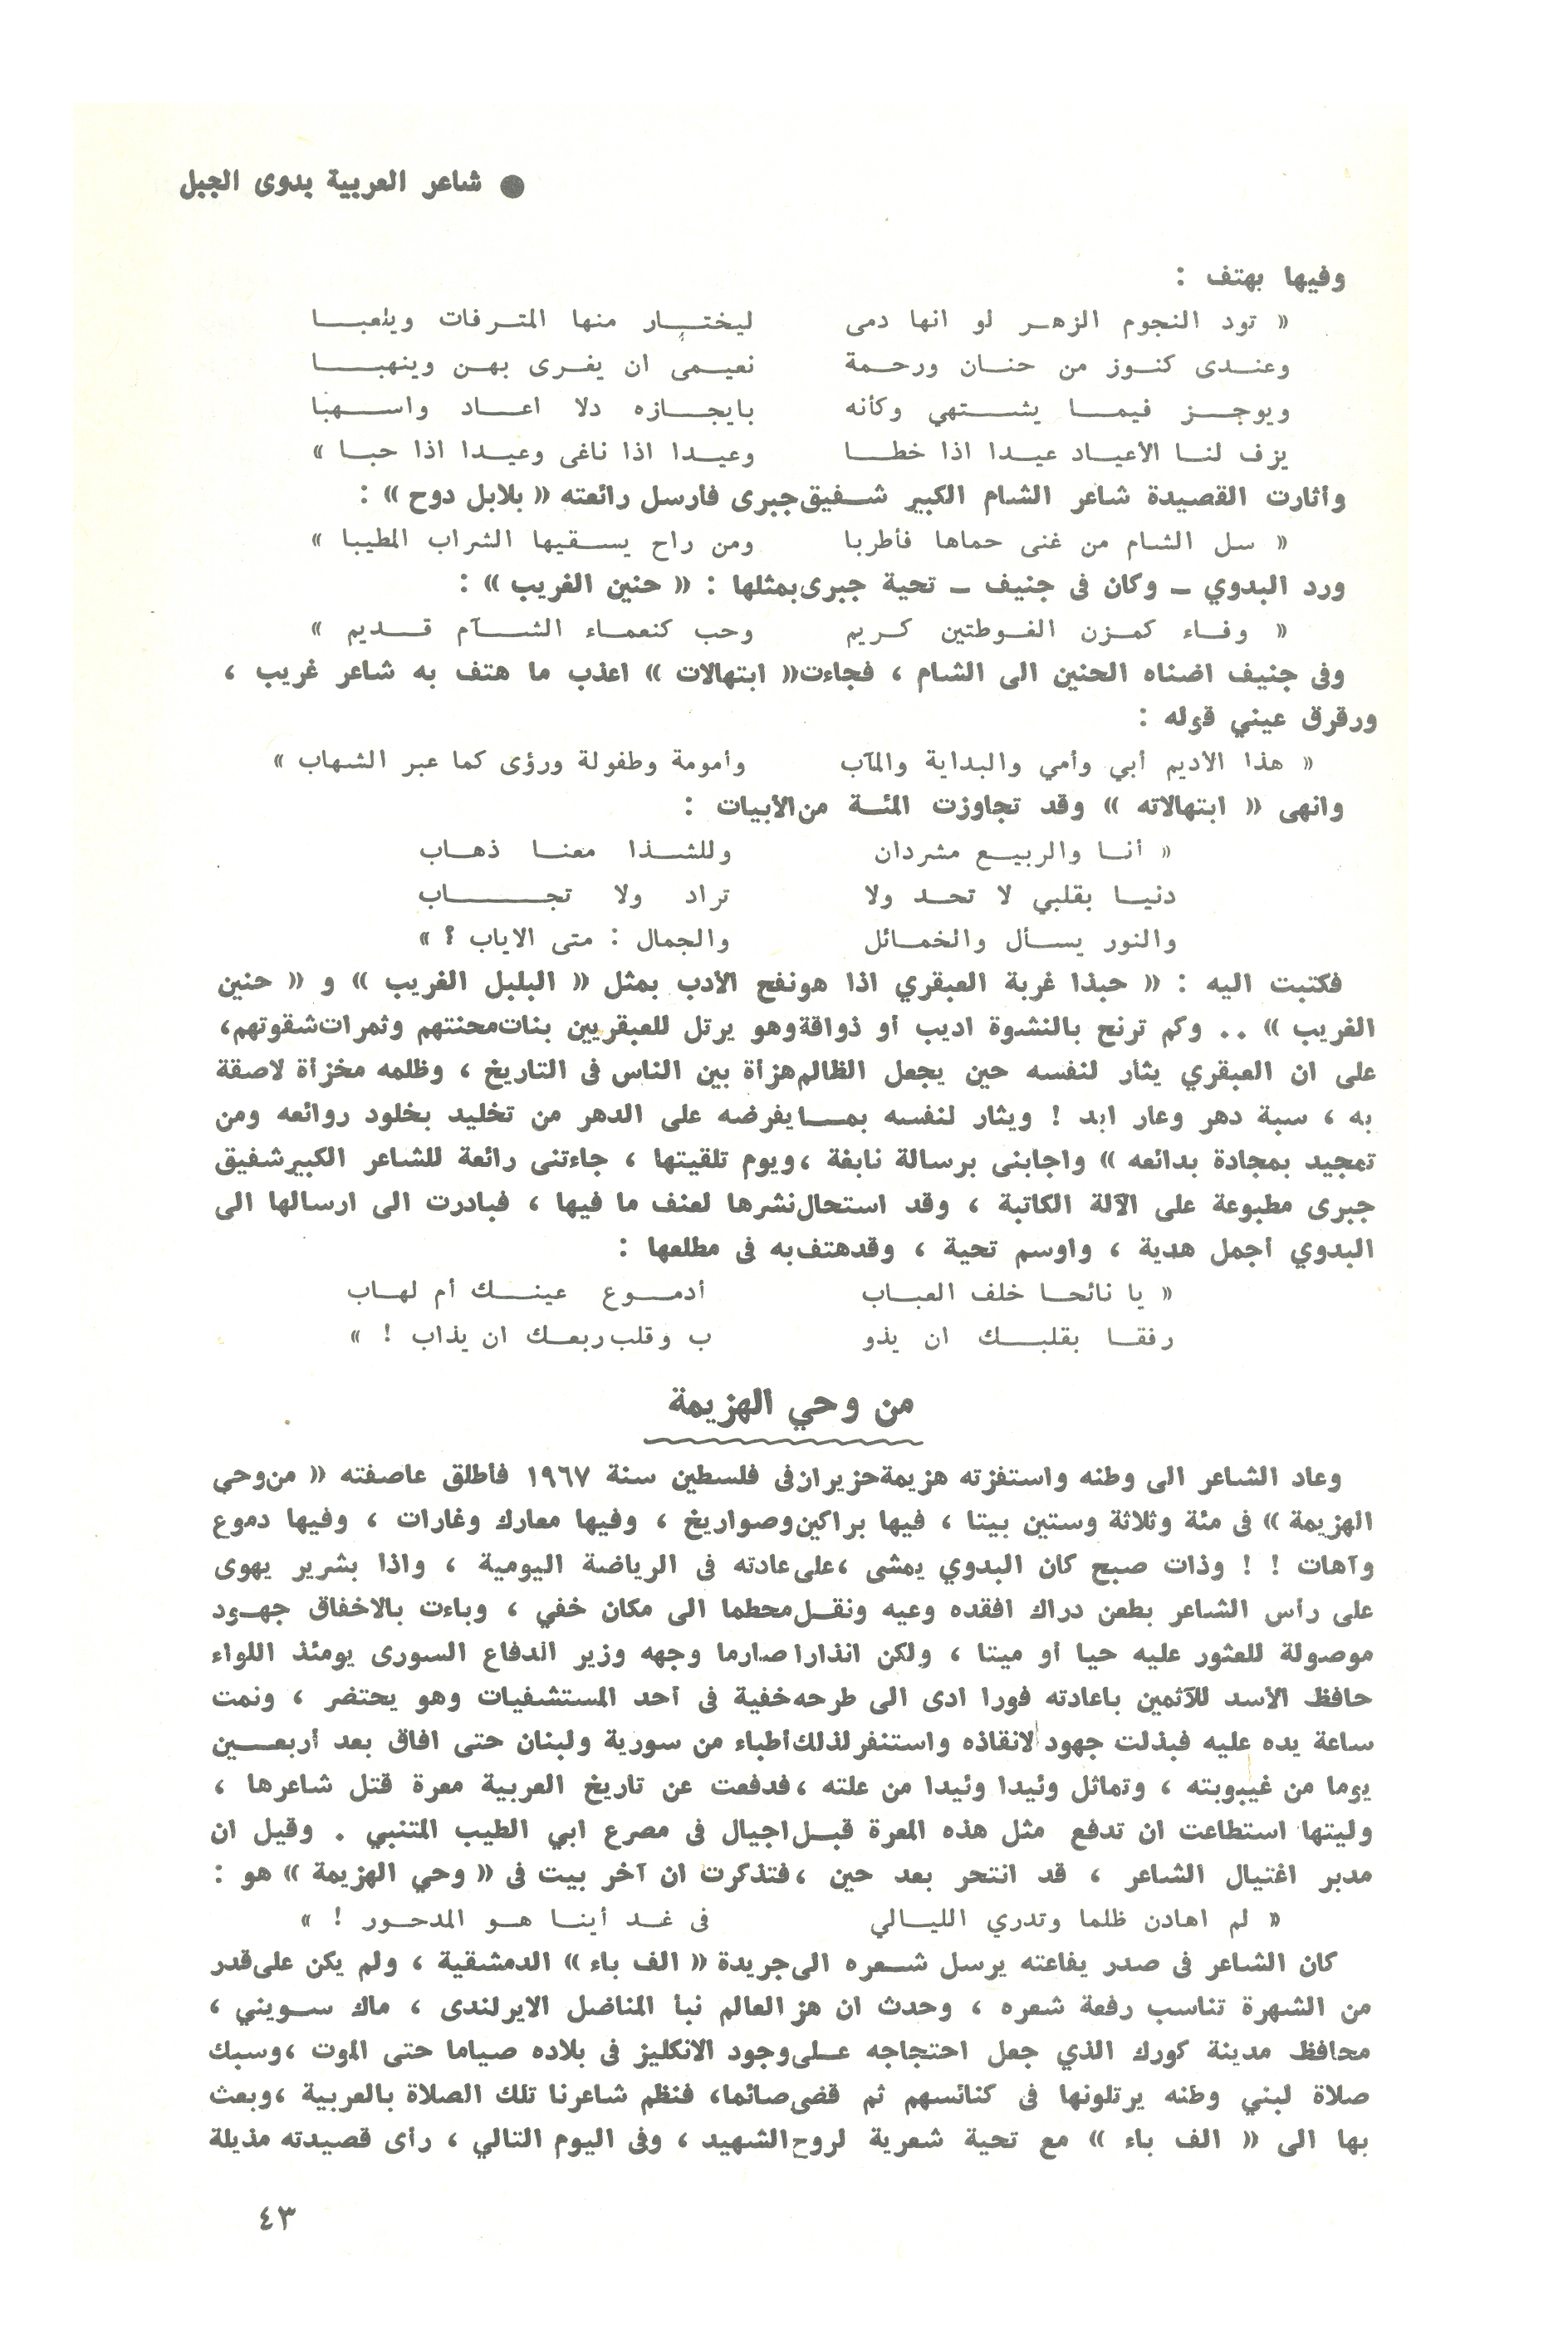 ● شاعر العربية بدوى الجبل
وفيها بهتف :
« تود النجوم الزهر لو انها دمى ليختار منها المترفات ويلعبا
وعندى كنوز من حنان ورحمة نعيمى ان يغرى بهن وينهبا
ويوجز فيما يشتهي وكأنه بايجازه دلا اعاد واسهبا
يزف لنا الاعياد عيدا اذا خطا وعيدا اذا ناغى وعيدا اذا حبا »
وأثارت القصيدة شاعر الشام الكبير شفيق جبرى فأرسل رائعته « بلابل دوح » :
« سل الشام من غنى حماها فأطربا ومن راح يسقيها الشراب المطيبا »
ورد البدوي ـ وكان فى جنيف ـ تحية جبرى بمثلها : « حنين الغريب » :
« وفاء كمزن الغوطتين كريم وحب كنعماء الشآم قديم »
وفى جنيف اضناه الحنين الى الشام ، فجاءت « ابتهالات » اعذب ما هتف به شاعر غريب ،
ورقرق عيني قوله :
« هذا الاديم أبي وأمي والبداية والمآب وأمومة وطفولة ورؤى كما عبر الشهاب »
وانهى « ابتهالاته » وقد تجاوزت المئة من الأبيات :
« أنا والربيع مشردان وللشذا معنا ذهاب
دنيا بقلبي لا تحد ولا تراد ولا تجاب
والنور يسأل والخمائل والجمال : متى الاياب ؟ »
فكتبت اليه : « حبذا غربة العبقري اذا هو نفح الأدب بمثل « البلبل الغريب » و « حنين
الغريب » .. وكم ترنح بالنشوة اديب أو ذواقة وهو يرتل للعبقريين بنات محنتهم وثمرات شقوتهم،
على ان العبقري يثأر لنفسه حين يجعل الظالم هزأة بين الناس فى التاريخ ، وظلمه مخزأة لاصقة
به ، سبة دهر وعار ابد ! ويثار لنفسه بما يفرضه على الدهر من تخليد بخلود روائعه ومن
تمجيد بمجادة بدائعه » واجابنى برسالة نابغة ، ويوم تلقيتها ، جاءتنى رائعة للشاعر الكبير شفيق
جبرى مطبوعة على الآلة الكاتبة ، وقد استحال نشرها لعنف ما فيها ، فبادرت الى ارسالها الى
البدوي أجمل هدية ، واوسم تحية ، وقد هتف به فى مطلعها :
« يا نائحا خلف العباب أدموع عينك أم لهاب
رفقا بقلبك ان يذو ب وقلب ربعك ان يذاب ! »
من وحي الهزيمة
وعاد الشاعر الى وطنه واستفزته هزيمة حزيران فى فلسطين سنة ١٩٦٧ فأطلق عاصفته « من وحي
الهزيمة » فى مئة وثلاثة وستين بيتا ، فيها براكين وصواريخ ، وفيها معارك وغارات ، وفيها دموع
وآهات ! ! وذات صبح كان البدوي يمشى ، على عادته فى الرياضة اليومية ، واذا بشرير يهوى
على رأس الشاعر بطعن دراك افقده وعيه ونقل محطما الى مكان خفي ، وباءت بالاخفاق جهود
موصولة للعثور عليه حيا أو ميتا ، ولكن انذارا صارما وجهه وزير الدفاع السورى يومئذ اللواء
حافظ الأسد للآثمين باعادته فورا ادى الى طرحه خفية فى أحد المستشفيات وهو يحتضر ، ونمت
ساعة يده عليه فبذلت جهود لانقاذه واستنفر لذلك أطباء من سورية ولبنان حتى افاق بعد أربعين
يوما من غيبوبته ، وتماثل وئيدا وئيدا من علته ، فدفعت عن تاريخ العربية معرة قتل شاعرها ،
وليتها استطاعت ان تدفع مثل هذه المعرة قبل اجيال فى مصرع ابي الطيب المتنبي . وقيل ان
مدبر اغتيال الشاعر ، قد انتحر بعد حين ، فتذكرت ان آخر بيت فى « وحي الهزيمة » هو :
« لم اهادن ظلما وتدري الليالي فى غد أينا هو المدحور ! »
كان الشاعر فى صدر يفاعته يرسل شعره الى جريدة « الف باء » الدمشقية ، ولم يكن على قدر
من الشهرة تناسب رفعة شعره ، وحدث ان هز العالم نبأ المناضل الايرلندى ، ماك سويني ،
محافظ مدينة كورك الذي جعل احتجاجه على وجود الانكليز فى بلاده صياما حتى الموت ، وسبك
صلاة لبني وطنه يرتلونها فى كنائسهم ثم قضى صائما، فنظم شاعرنا تلك الصلاة بالعربية ، وبعث
بها الى « الف باء » مع تحية شعرية لروح الشهيد ، وفى اليوم التالي ، رأى قصيدته مذيلة
٤٣